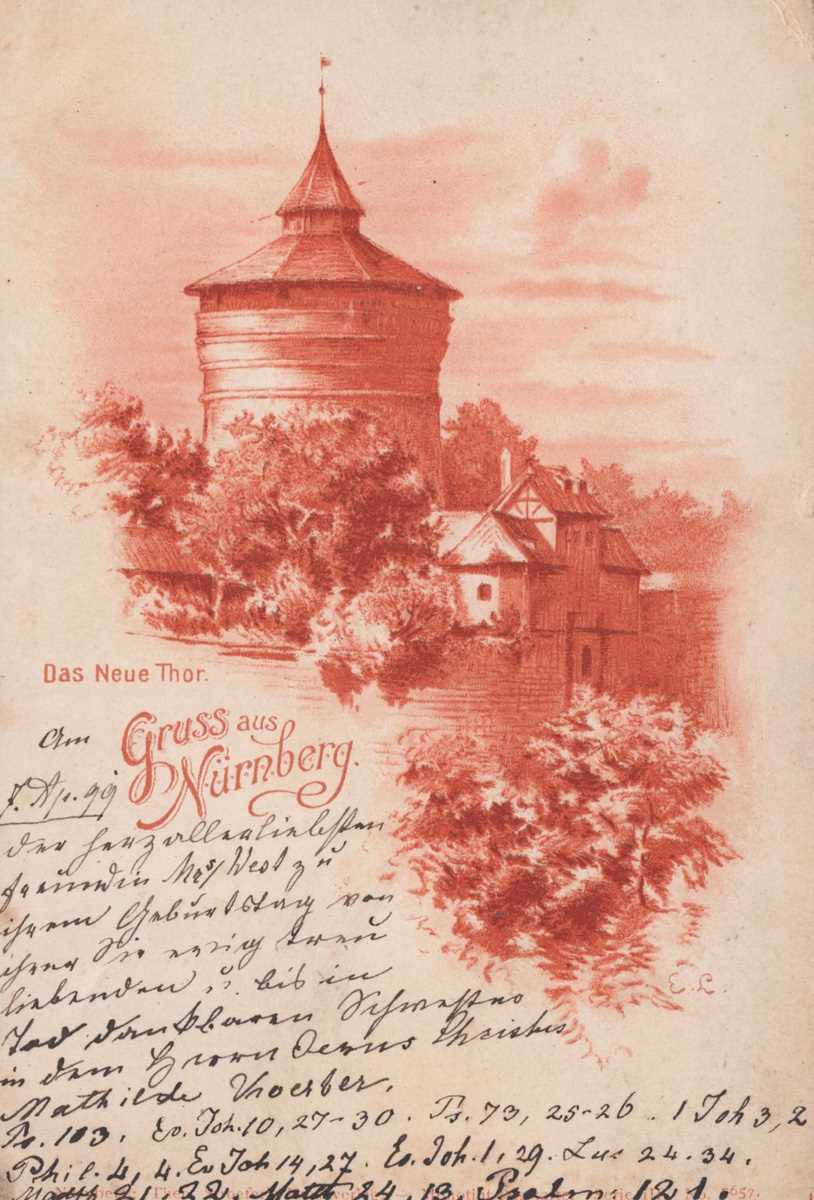 Das Neue Thor.
Gruss aus
Nürnberg.
Am
7. Ap. 99
der herzallerliebsten
Freundin Mrs/ West zu
ihrem Geburtstag von
ihrer Sie ewig treu
liebenden u. bis in
Tod dankbaren Schwester
in dem Herrn Jesus Christus
Mathilde
E. L.
Ps. 103. Ev. Joh. 10, 27-30. Ps. 73, 25-26. 1 Joh 3, 2
Phil. 4, 4. Ev Joh 14, 27. Ev. Joh. 1, 29. Luc 24. 34.
Matth 21, 22. Matth 24, 13. Psalm. 121.